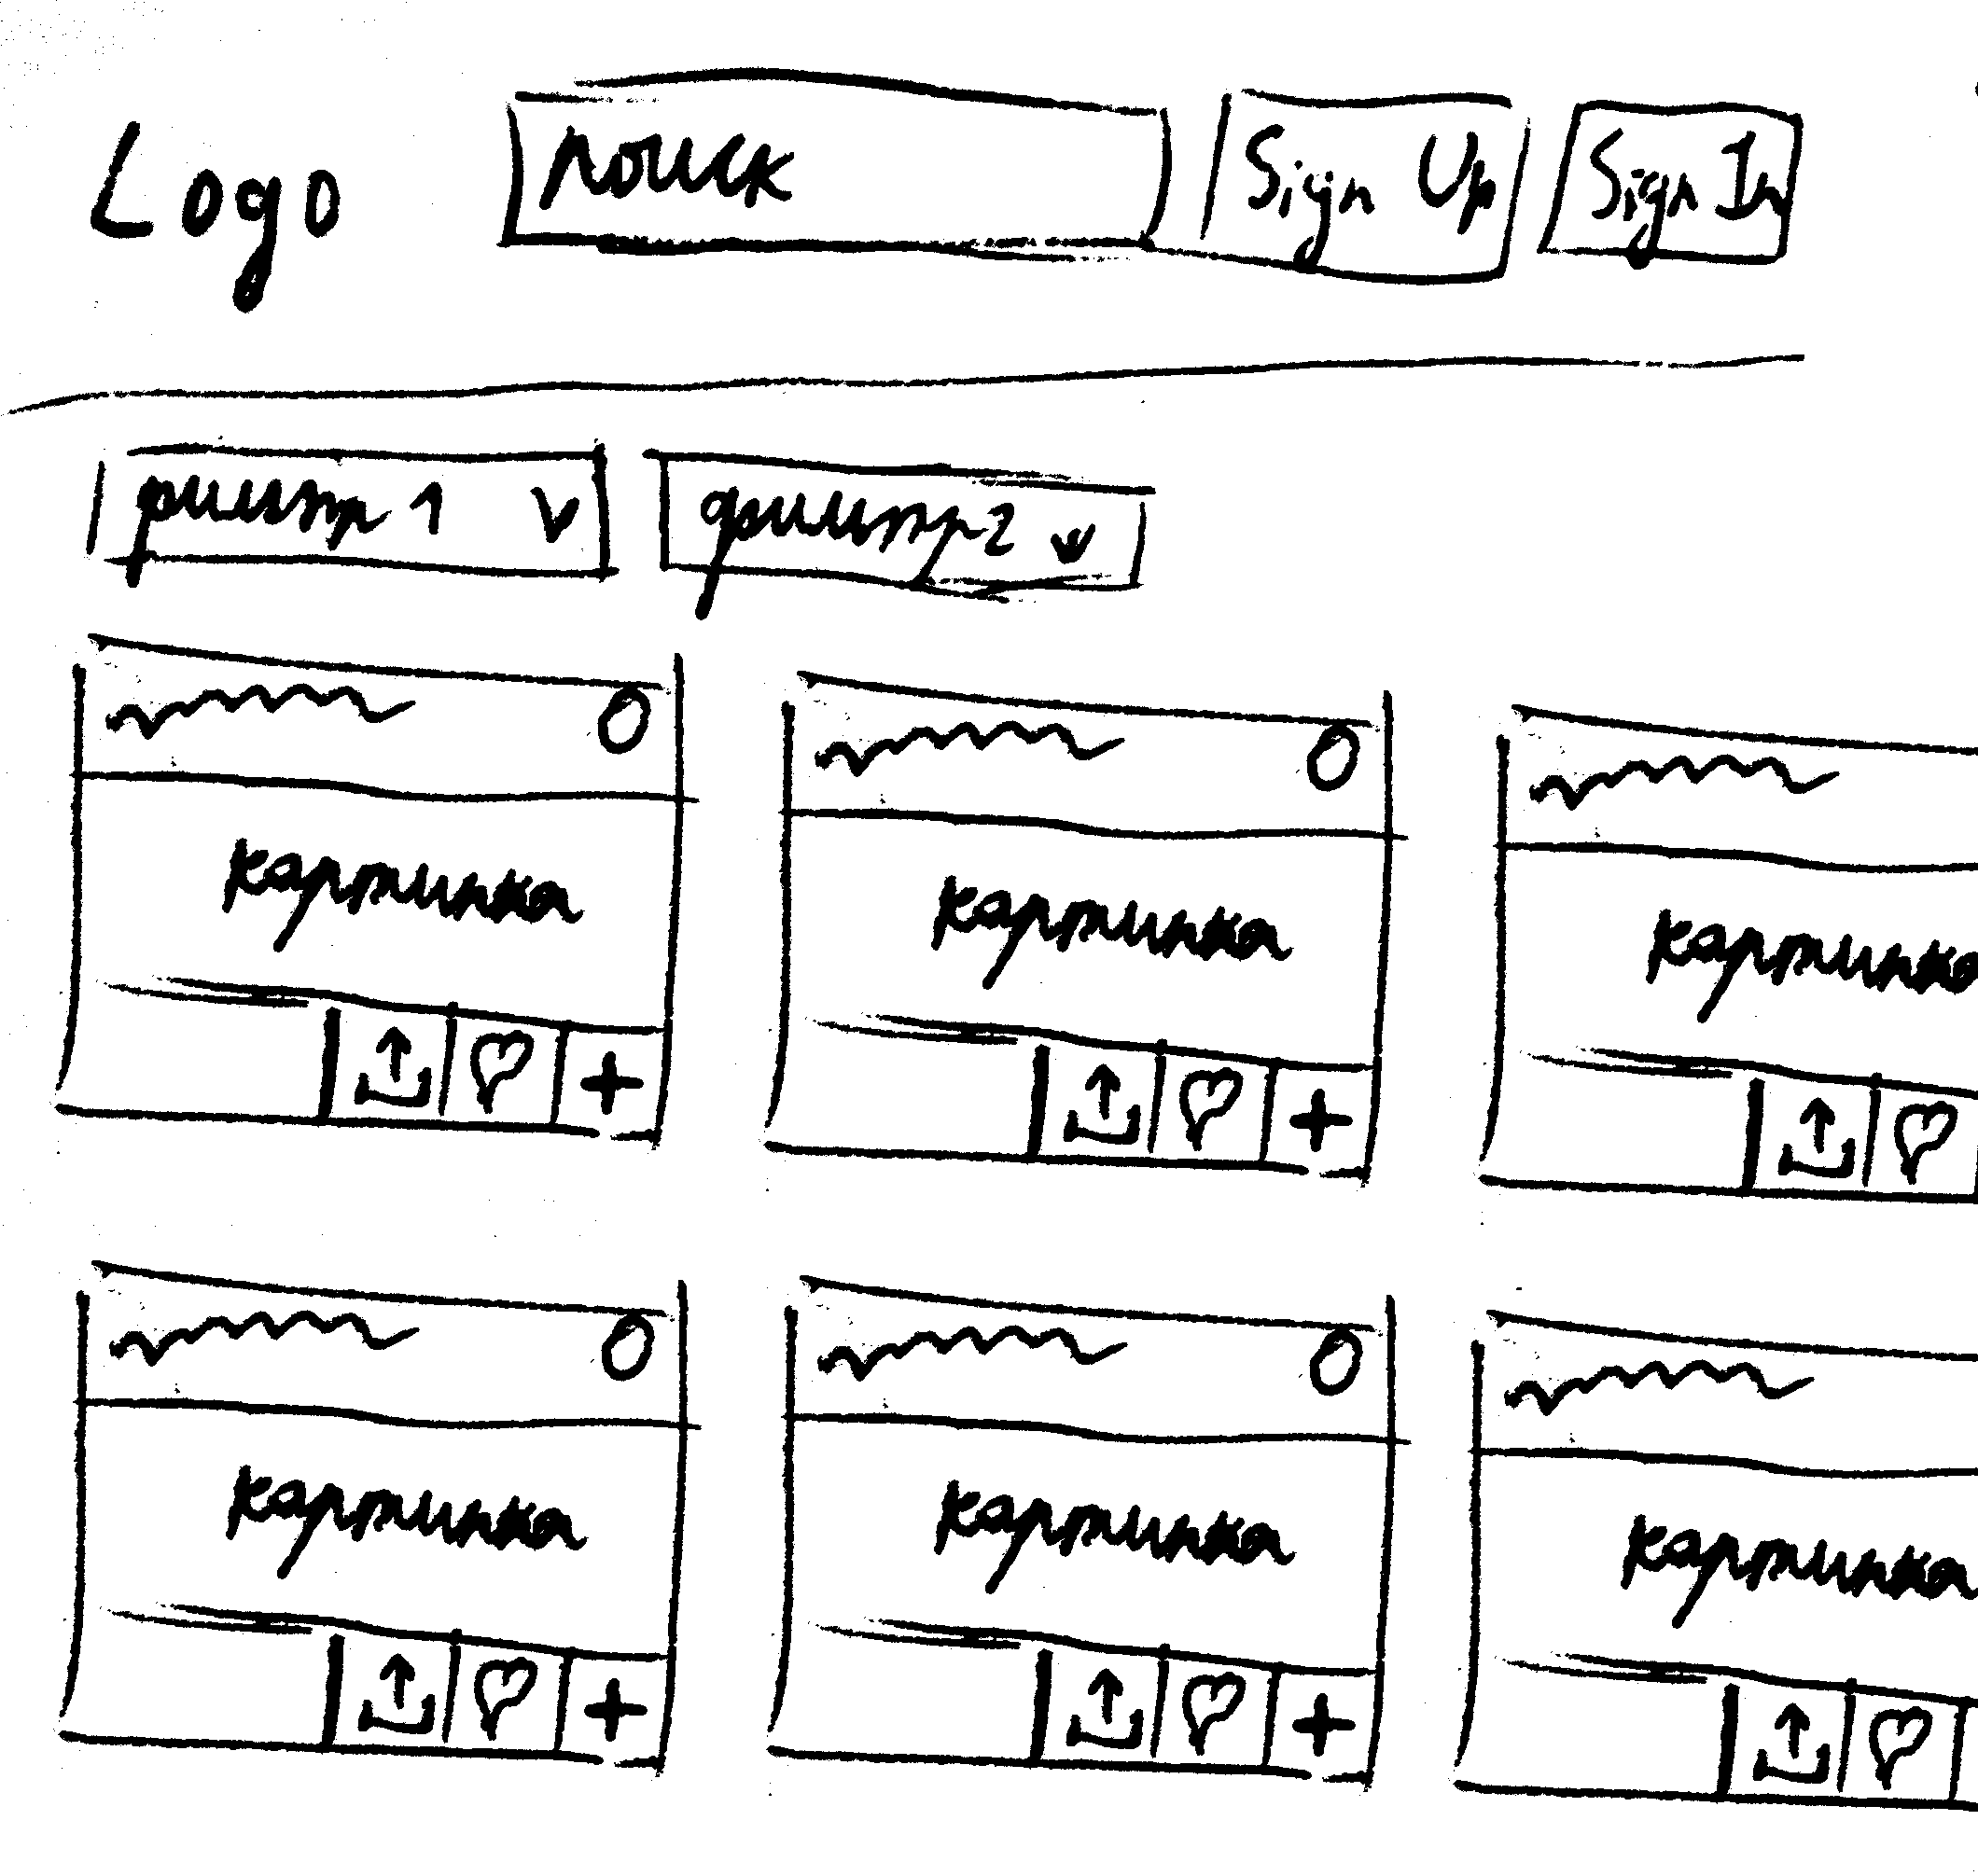 Logo поиск Sign Up Sign In
фильтр 1 фильтр 2
картинка картинка картинка
картинка картинка картинка